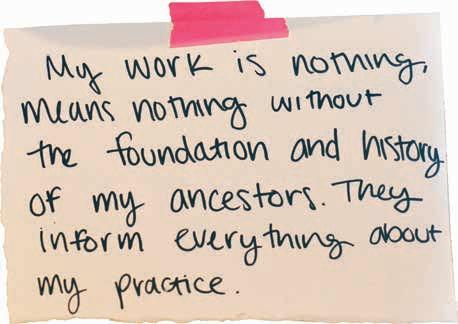 My work is nothing,
means nothing without
the foundation and history
of my ancestors. They
inform everything about
my practice.